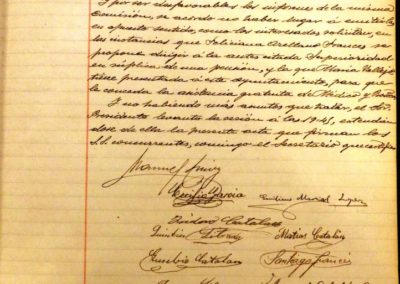 Y por ser desfavorables los informes de la misma
Comisión, se acordó no haber lugar a emitirlos
en opuesto sentido, como los interesados solicitan, en
las instancias que Feliciana Arellano Frances se
propone dirigir a la antes citada Superioridad
en súplica de una pensión, y la que María Vallejo
tiene presentada a este Ayuntamiento, para que
le conceda la asistencia gratuita de Médico y
Y no habiendo más asuntos que tratar, el Sr.
Presidente levanta la sesión a las 19'45, extendien
dose de ella la presente acta que firman los
S.S. concurrentes, conmigo el Secretario que certifico
Manuel
Emilio Garcia Emiliano Marial Lopez
Isidoro Catalan
Quintin Matias Catalán
Eusebio Catalan Santiago Francés